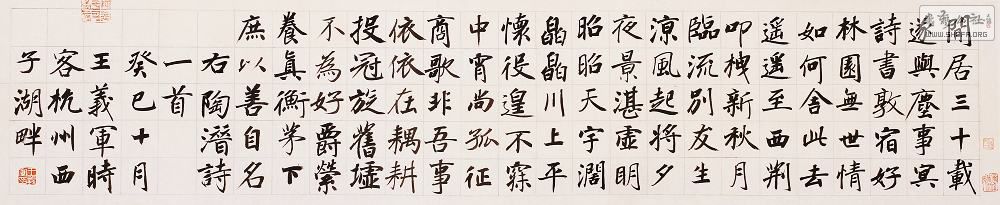 閒居三十載
遂與塵事冥
詩書敦宿好
林園無世情
如何舍此去
遥遥至西荆
叩栧新秋月
臨流別友生
涼風起將夕
夜景湛虛明
昭昭天宇濶
皛皛川上平
懷役遑不寐
中宵尚孤征
商歌非吾事
依依在耦耕
投冠旋舊墟
不為好爵縈
養真衡茅下
庶以善自名
右陶潛詩
一首
癸巳十月
王義軍時
客杭州西
子湖畔